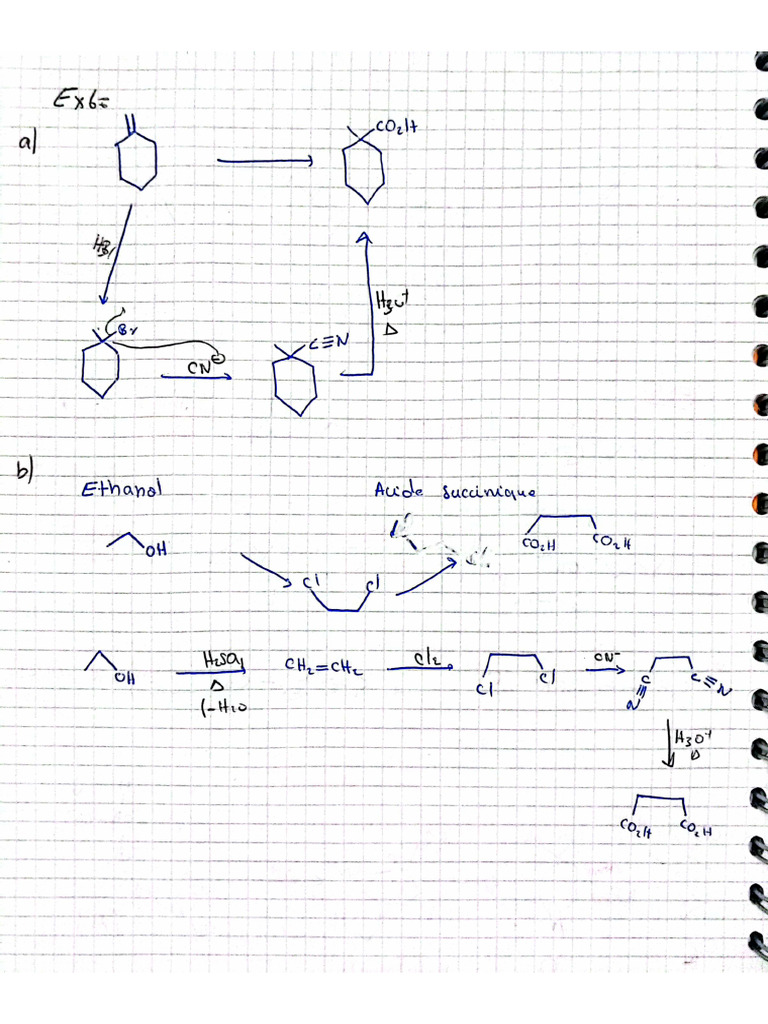 Ex6=
a)
CO₂H
HBr
H₃O⁺
Δ
Br
CN⊖
C≡N
b)
Ethanol
Acide succinique
OH
Cl Cl
CO₂H CO₂H
OH
H₂SO₄
Δ
(-H₂O
CH₂=CH₂
Cl₂
Cl Cl
CN⁻
C≡N C≡N
H₃O⁺
Δ
CO₂H CO₂H